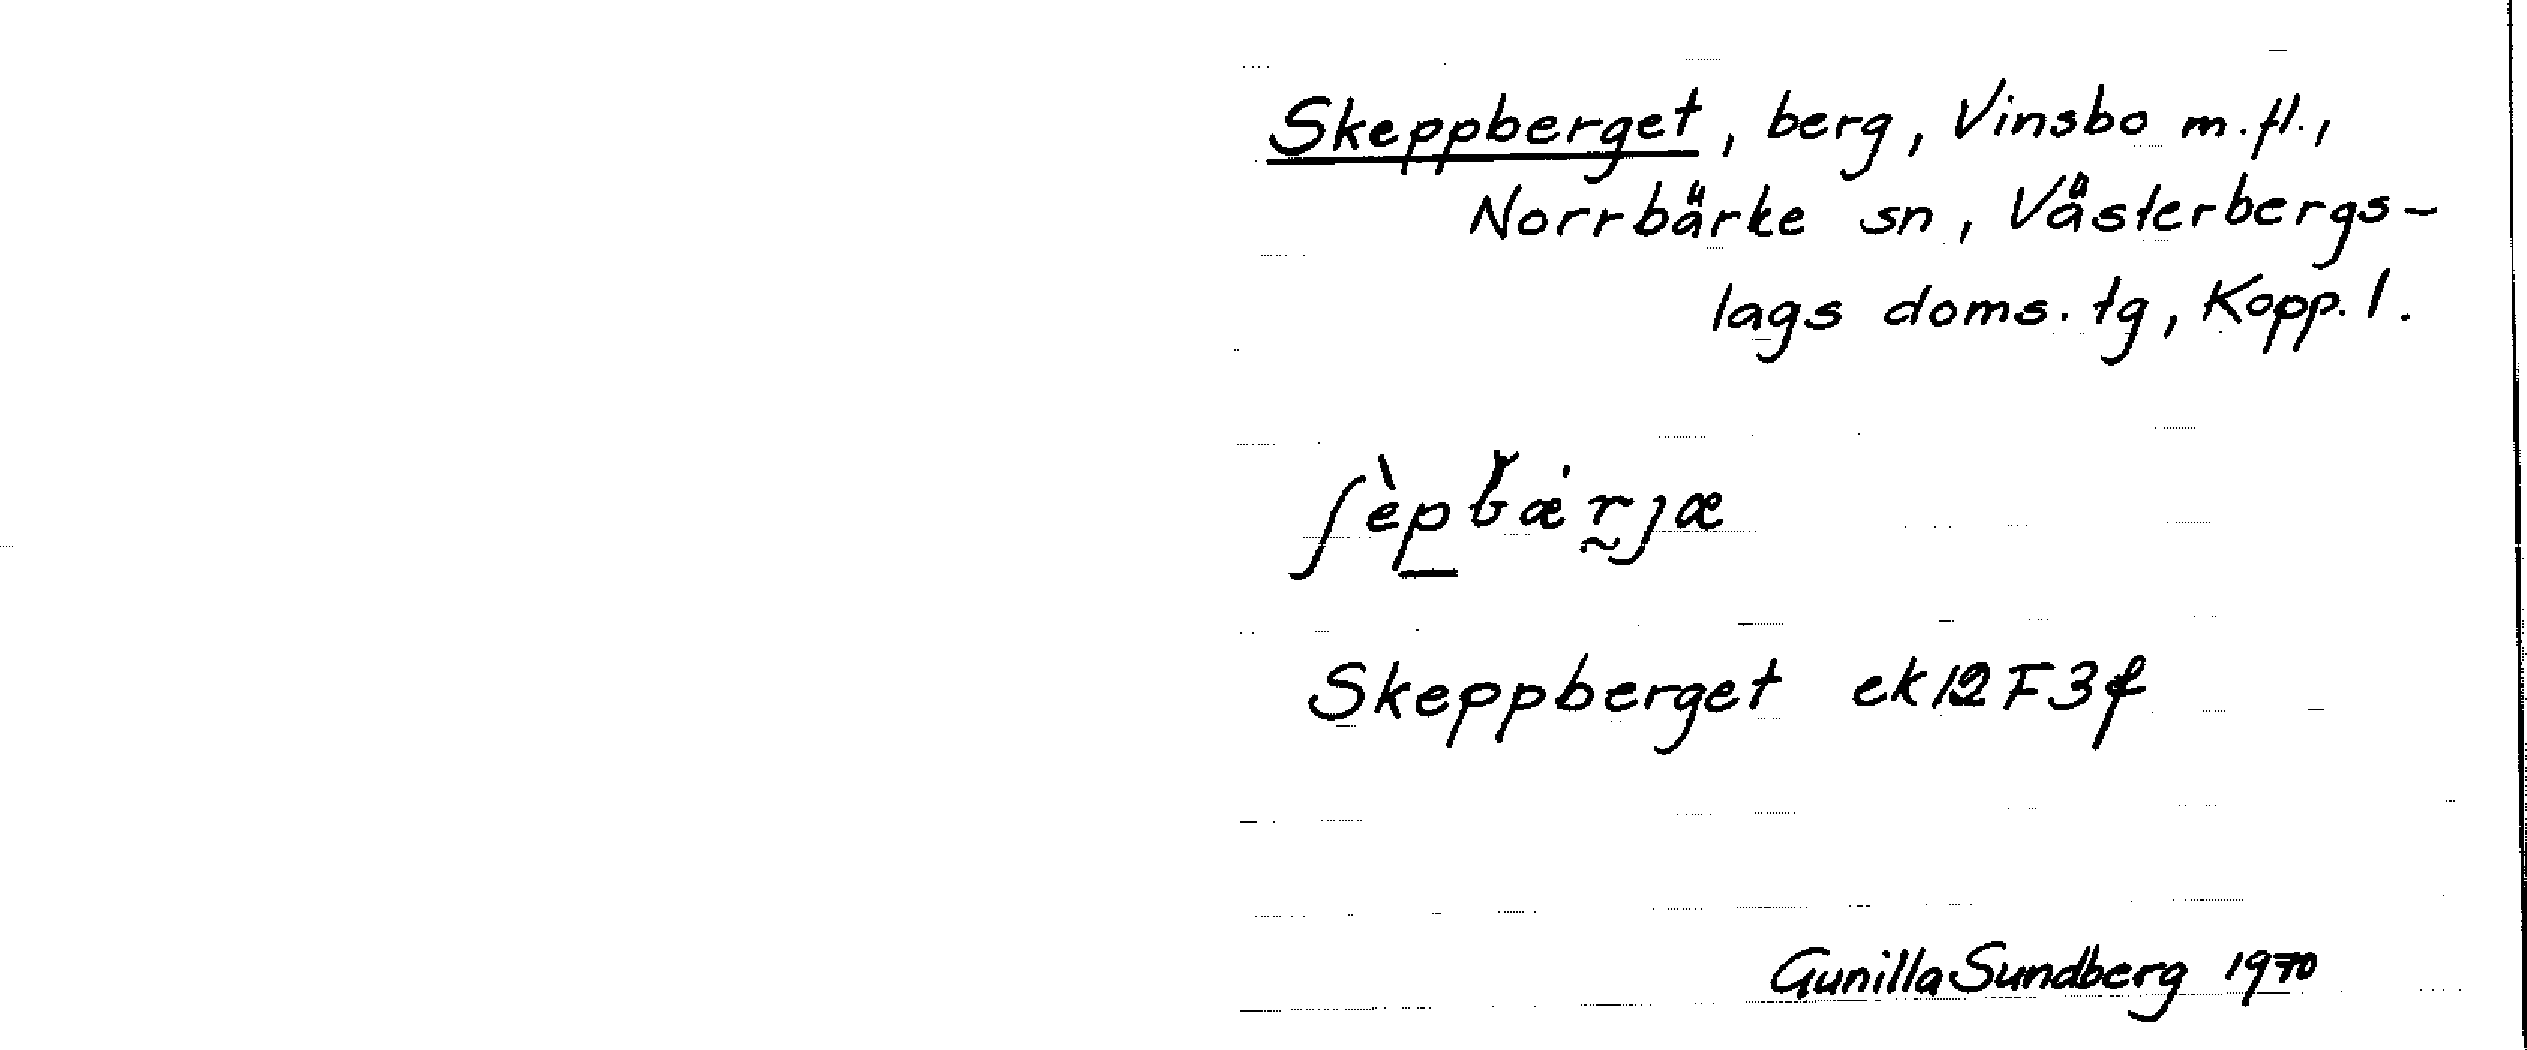 Skeppberget, berg, Vinsbo m.fl.,
Norrbärke sn, Västerbergs-
lags doms. tg, Kopp. l.
ʃèpbæ̇rjæ
Skeppberget ek 12F3f
Gunilla Sundberg 1970